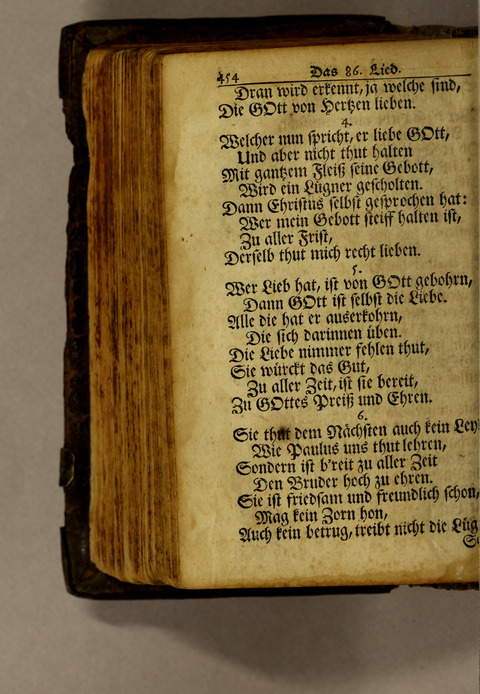 454 Das 86. Lied.
Dran wird erkennt, ja welche sind,
Die GOtt von Hertzen lieben.
4.
Welcher nun spricht, er liebe GOtt,
Und aber nicht thut halten
Mit gantzem Fleiß seine Gebott,
Wird ein Lügner gescholten.
Dann Christus selbst gesprochen hat:
Wer mein Gebott steiff halten ist,
Zu aller Frist,
Derselb thut mich recht lieben.
5.
Wer Lieb hat, ist von GOtt gebohrn,
Dann GOtt ist selbst die Liebe.
Alle die hat er auserkohrn,
Die sich darinnen üben.
Die Liebe nimmer fehlen thut,
Sie würckt das Gut,
Zu aller Zeit, ist sie bereit,
Zu GOttes Preiß und Ehren.
6.
Sie thut dem Nächsten auch kein Ley
Wie Paulus uns thut lehren,
Sondern ist b'reit zu aller Zeit
Den Bruder hoch zu ehren.
Sie ist friedsam und freundlich schon,
Mag kein Zorn hon,
Auch kein betrug, treibt nicht die Lüg